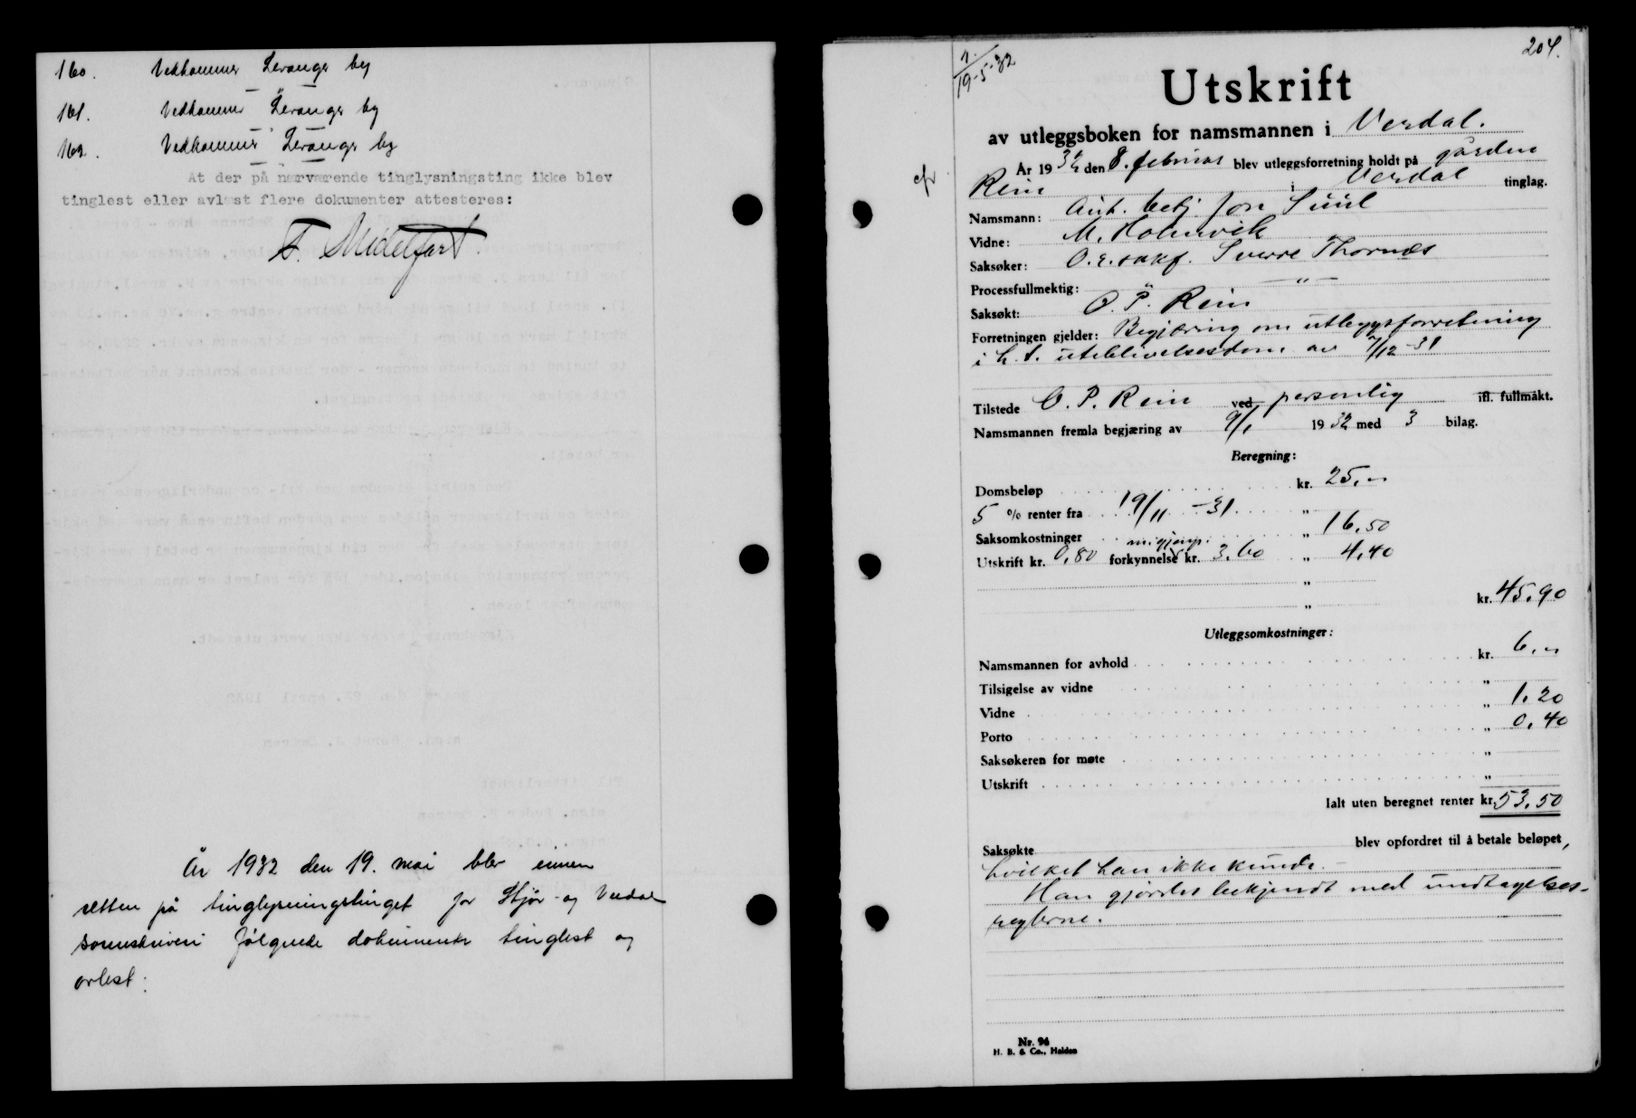 160. Vedkommer Levanger by
161. Vedkommer Levanger by
162. Vedkommer Levanger by
At der på nærværende tinglysningsting ikke blev
tinglest eller avlæst flere dokumenter attesteres:
F. Midelfart.
År 1932 den 19. mai blev innen
retten på tinglysningstinget for Stjør- og Verdal
sorenskriveri følgende dokumenter tinglest og
avlest:
204.
1./19-5-32
Utskrift
av utleggsboken for namsmannen i Verdal.
År 1932 den 8. februar blev utleggsforretning holdt på gården
Rein i Verdal tinglag.
Namsmann: Aut. betj. Jon Suul
Vidne: M. Holmvik
Saksøker: O.r.sakf. Sverre Thornæs
Processfullmektig: " —
Saksøkt: O. P. Rein
Forretningen gjelder: Begjæring om utleggsforretning
i h. t. uteblivelsesdom av /12-31
Tilstede O. P. Rein ved personlig ifl. fullmakt.
Namsmannen fremla begjæring av 9/1 1932 med 3 bilag.
Beregning:
Domsbeløp kr. 25,-
5 % renter fra 19/11-31. "
Saksomkostninger " 16,50
Utskrift kr. 0,80 forkynnelse kr. 3,60 " 4,40
"
" kr. 45,90
Utleggsomkostninger:
Namsmannen for avhold kr. 6,-
Tilsigelse av vidne "
Vidne " 1,20
Porto " 0,40
Saksøkeren for møte "
Utskrift "
Ialt uten beregnet renter kr. 53,50
Saksøkte blev opfordret til å betale beløpet,
hvilket han ikke kunde.
Han gjordes bekjendt med undtagelses-
reglerne.
Nr. 96
H. B. & Co., Halden